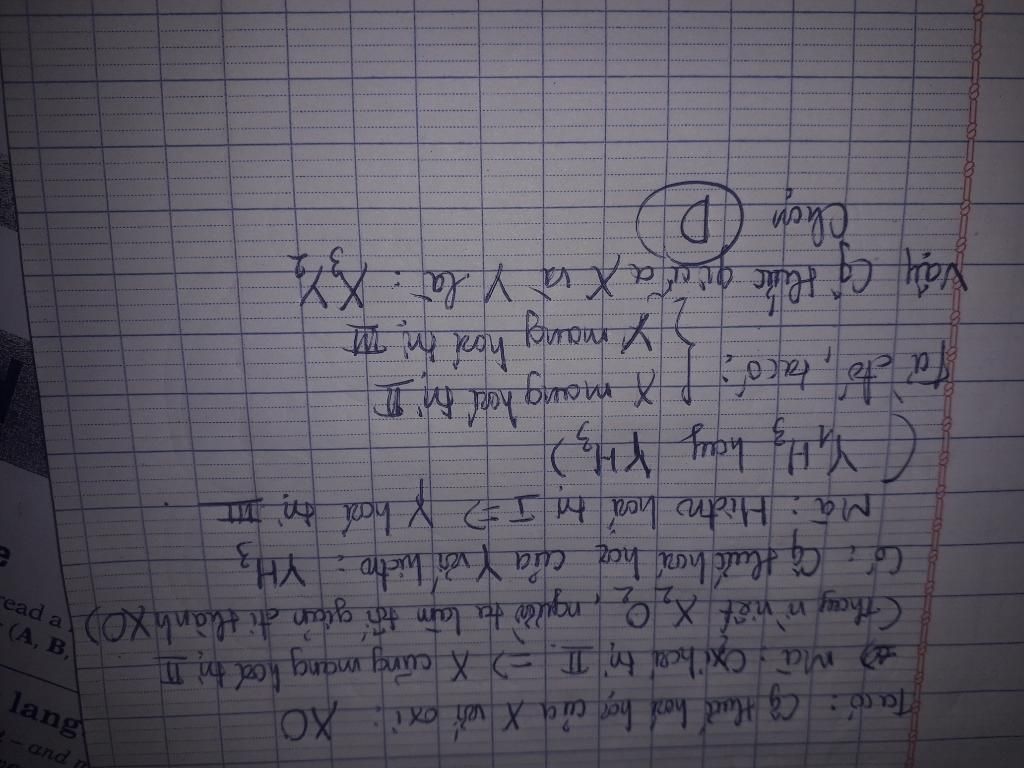 Ta có: CT hoá học của X với oxi: XO
=> Mà: Oxi hoá trị II => X cũng mang hoá trị II
(Thay vì viết X2O2, người ta làm tối giản đi thành XO)
Có: CT hoá học của Y với hidro: YH3
Mà: Hidro hoá trị I => Y hoá trị III.
(Y1H3 hay YH3)
Từ đó, ta có: { X mang hoá trị II
Y mang hoá trị III
Vậy CT thức giữa X và Y là: X3Y2
Chọn D
e
read a
(A, B,
lang
- and